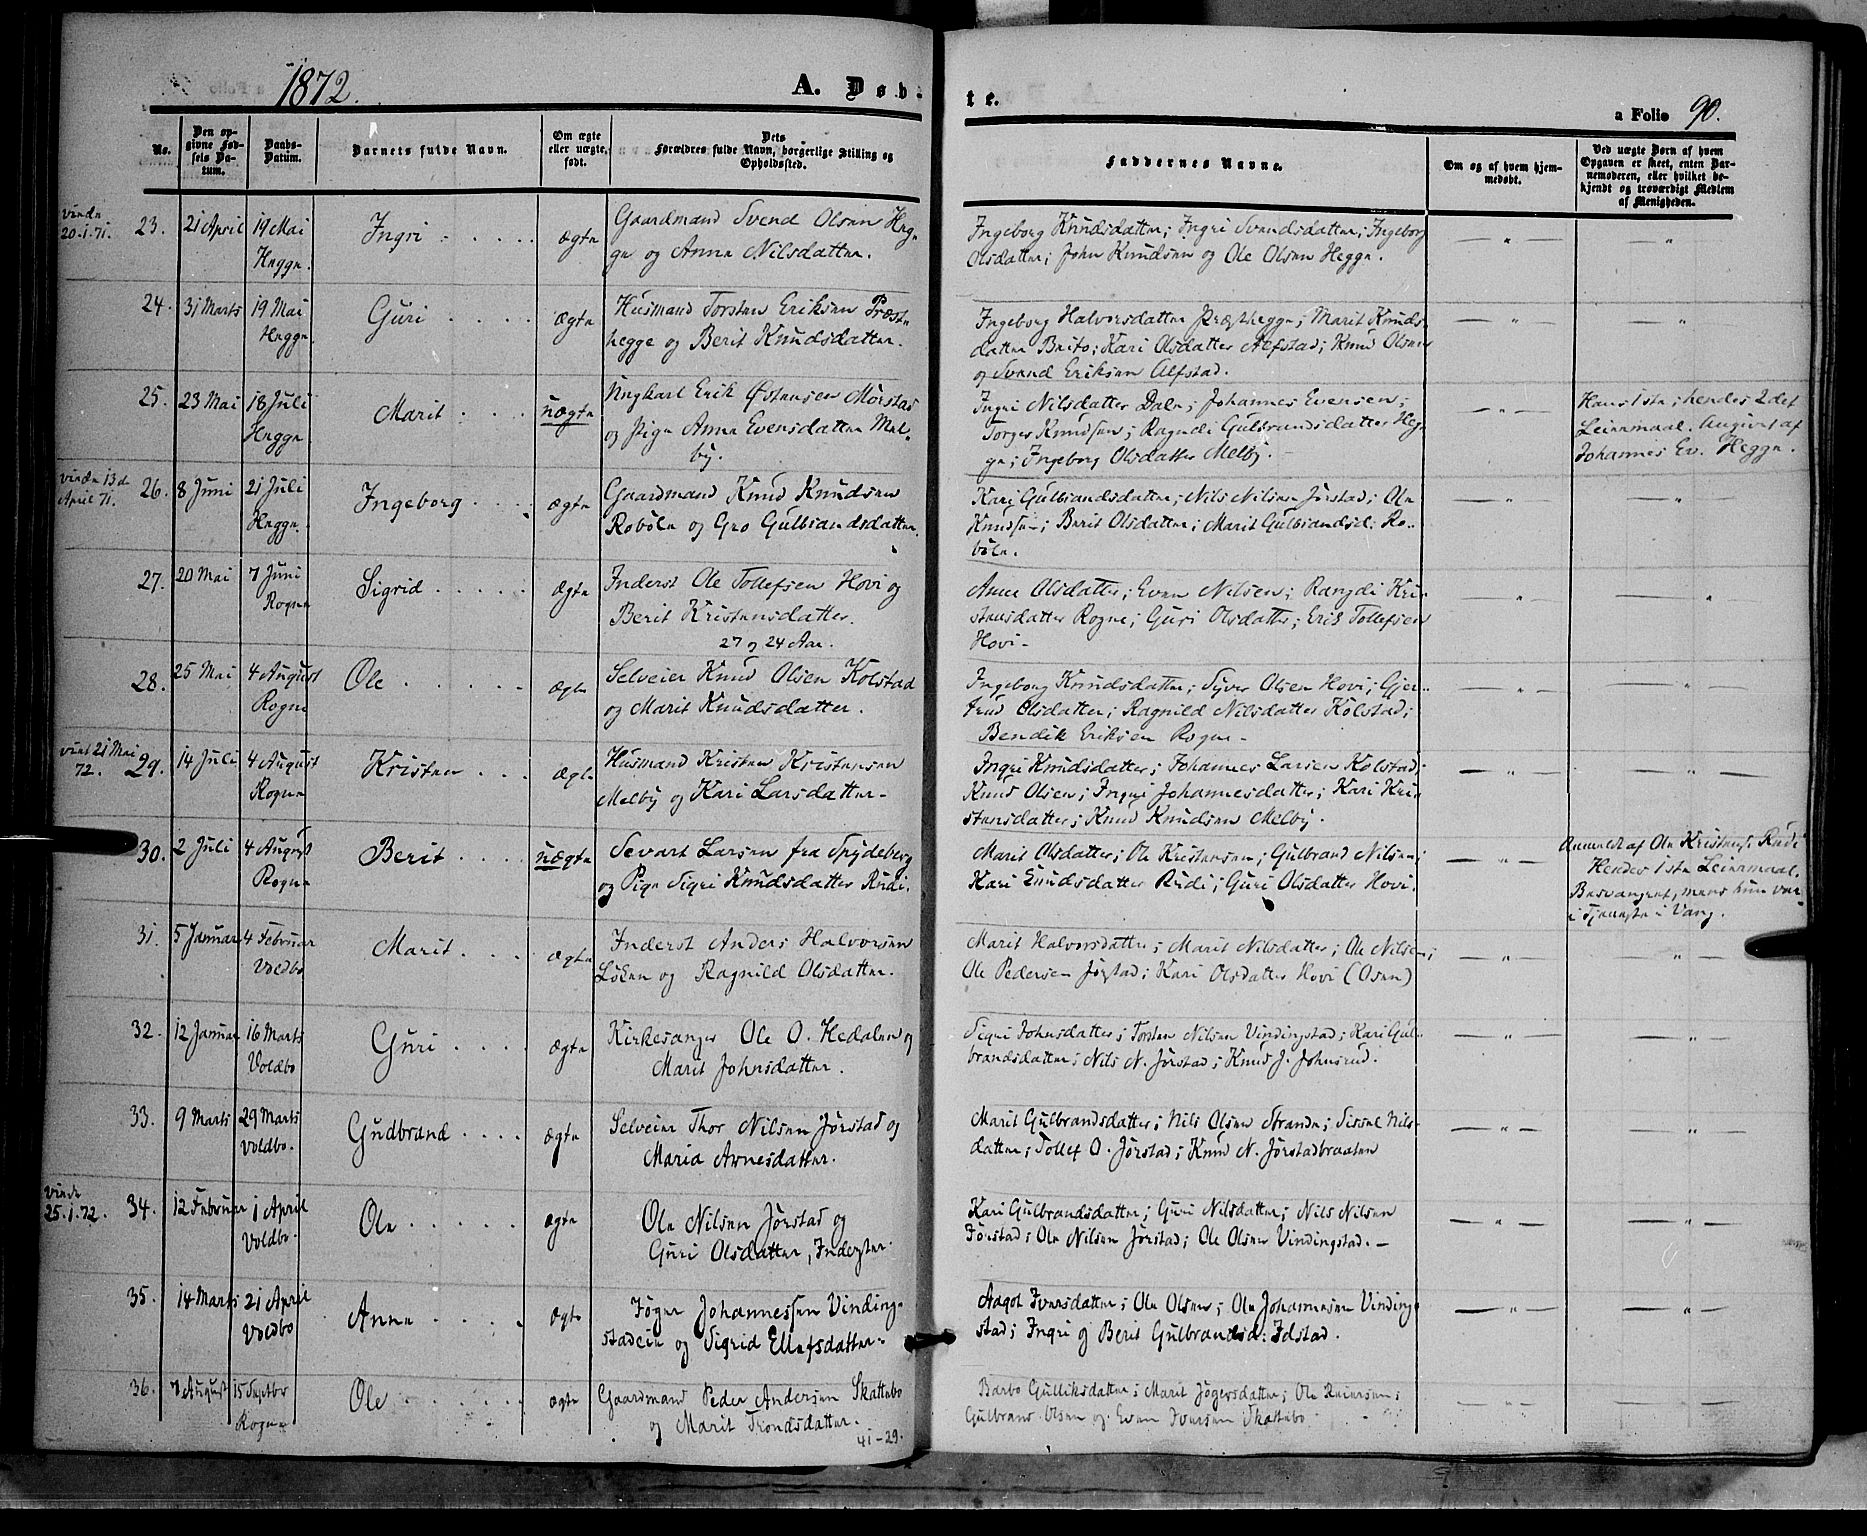 1872.
A. Døb-
te.
a Folio 90.
No.
Den op-
givne Fød-
sels Da-
tum.
Daabs-
Datum.
Barnets fulde Navn.
Om ægte
eller uægte
født.
Dets
Forældres fulde Navn, borgerlige Stilling og
Opholdssted.
Faddernes Navne.
Om og af hvem hjem-
medøbt.
Ved uægte Børn af hvem
Opgaven er skeet, enten Bar-
nemoderen, eller hvilket be-
kjendt og troværdigt Medlem
af Menigheden.
20.1.71.
23. 21 April 19 Mai Hegge. Ingri ægte
Gaardmand Svend Olsen Heg-
ge og Anne Nilsdatter.
Ingeborg Knudsdatter; Ingri Svendsdatter; Ingeborg
Olsdatter; John Knudsen og Ole Olsen Hegge.
24. 31 Marts 19 Mai Hegge. Guri ægte
Husmand Torsten Eriksen Præst-
hegge og Berit Knudsdatter.
Ingeborg Halvorsdatter Præsthegge; Marit Knuds-
datter Brito; Kari Olsdatter Alfstad; Knud Olsen
og Svend Eriksen Alfstad.
25. 23 Mai 18 Juli Hegge Marit uægte
Ungkarl Erik Østensen Mørstad
og Pige Anne Evensdatter Mel-
by.
Ingri Nilsdatter Dale; Johannes Evensen;
Torger Knudsen; Ragndi Gulbrandsdatter Heg-
ge; Ingeborg Olsdatter Melby.
Hans 1ste; hendes 2det
Leiermaal. Angivet af
Johannes Ev. Hegge.
April 71.
26. 8 Juni 21 Juli Hegge. Ingeborg ægte
Gaardmand Knud Knudsen
Robøle og Gro Gulbrandsdatter.
Kari Gulbrandsdatter; Nils Nilsen Jørstad; Ole
Knudsen; Berit Olsdatter; Marit Gulbrandsd. Ro-
bøle.
27. 20 Mai 7 Juni Rogne Sigrid ægte
Inderst Ole Tollefsen Hovi og
Berit Kristensdatter.
27 og 24 Aar.
Anne Olsdatter; Even Nilsen; Rangdi Kri-
stensdatter Rogne; Guri Olsdatter; Erik Tollefsen
Hovi
28. 25 Mai 4 August Rogne Ole ægte
Selveier Knud Olsen Kolstad
og Marit Knudsdatter.
Ingeborg Knudsdatter; Syver Olsen Hovi; Gjer-
trud Olsdatter; Ragnild Nilsdatter Kolstad;
Bendik Eriksen Rogne
21 Mai
72.
29. 14 Juli 4 August Rogne Kristen ægte
Husmand Kristen Kristensen
Melby og Kari Larsdatter
Ingri Knudsdatter; Johannes Larsen Kolstad;
Knud Olsen; Ingri Johannesdatter; Kari Kri-
stensdatter; Knud Knudsen Melby.
30. 2 Juli 4 August Rogne Berit uægte
Sevart Larsen fra Spydeberg
og Pige Sigri Knudsdatter Rudi.
Marit Olsdatter; Ole Kristensen; Gulbrand Nilsen;
Kari Knudsdatter Rudi; Guri Olsdatter Hovi.
Anmeldt af Ole Kristens. Rudi
Hendes 1ste Leiermaal.
Besvangret, mens hun var
i Tjeneste i Vang.
31. 5 Januar 4 Februar Voldbo Marit ægte
Inderst Anders Halvorsen
Løken og Ragnild Olsdatter.
Marit Halvorsdatter; Marit Nilsdatter; Ole Nilsen;
Ole Pedersen Jørstad; Kari Olsdatter Hovi (Osen)
32. 12 Januar 16 Marts Voldbo Guri ægte
Kirkesanger Ole O. Hedalen og
Marit Johnsdatter.
Sigri Johnsdatter; Torsten Nilsen Vindingstad; Kari Gul-
brandsdatter; Nils N. Jørstad; Knud J. Johnsrud.
33. 9 Marts 29 Marts Voldbo. Gudbrand ægte
Selveier Thor Nilsen Jørstad og
Maria Arnesdatter.
Marit Gulbrandsdatter; Nils Olsen Strande; Sissel Nils-
datter; Tollef O. Jørstad; Knud N. Jørstadbraaten
25.1.72.
34. 12 Februar 1 April Voldbo. Ole ægte
Ole Nilsen Jørstad og
Guri Olsdatter, Inderster.
Kari Gulbrandsdatter; Guri Nilsdatter; Nils Nilsen
Jørstad; Ole Nilsen Jørstad; Ole Olsen Vindingstad.
35. 14 Marts 21 April Voldbo Anne ægte
Jøger Johannessen Vinding-
stadeie og Sigrid Ellefsdatter
Aagot Iversdatter; Ole Olsen; Ole Johannesen Vinding-
stad; Ingri og Berit Gulbrandsd. Idstad.
36. 7 August 15 Septbr Rogne Ole ægte
Gaardmand Peder Andersen Skattebo
og Marit Trondsdatter.
41-29.
Barbo Gulliksdatter; Marit Jøgersdatter; Ole Reiersen;
Gulbrand Olsen og Even Iversen Skattebo